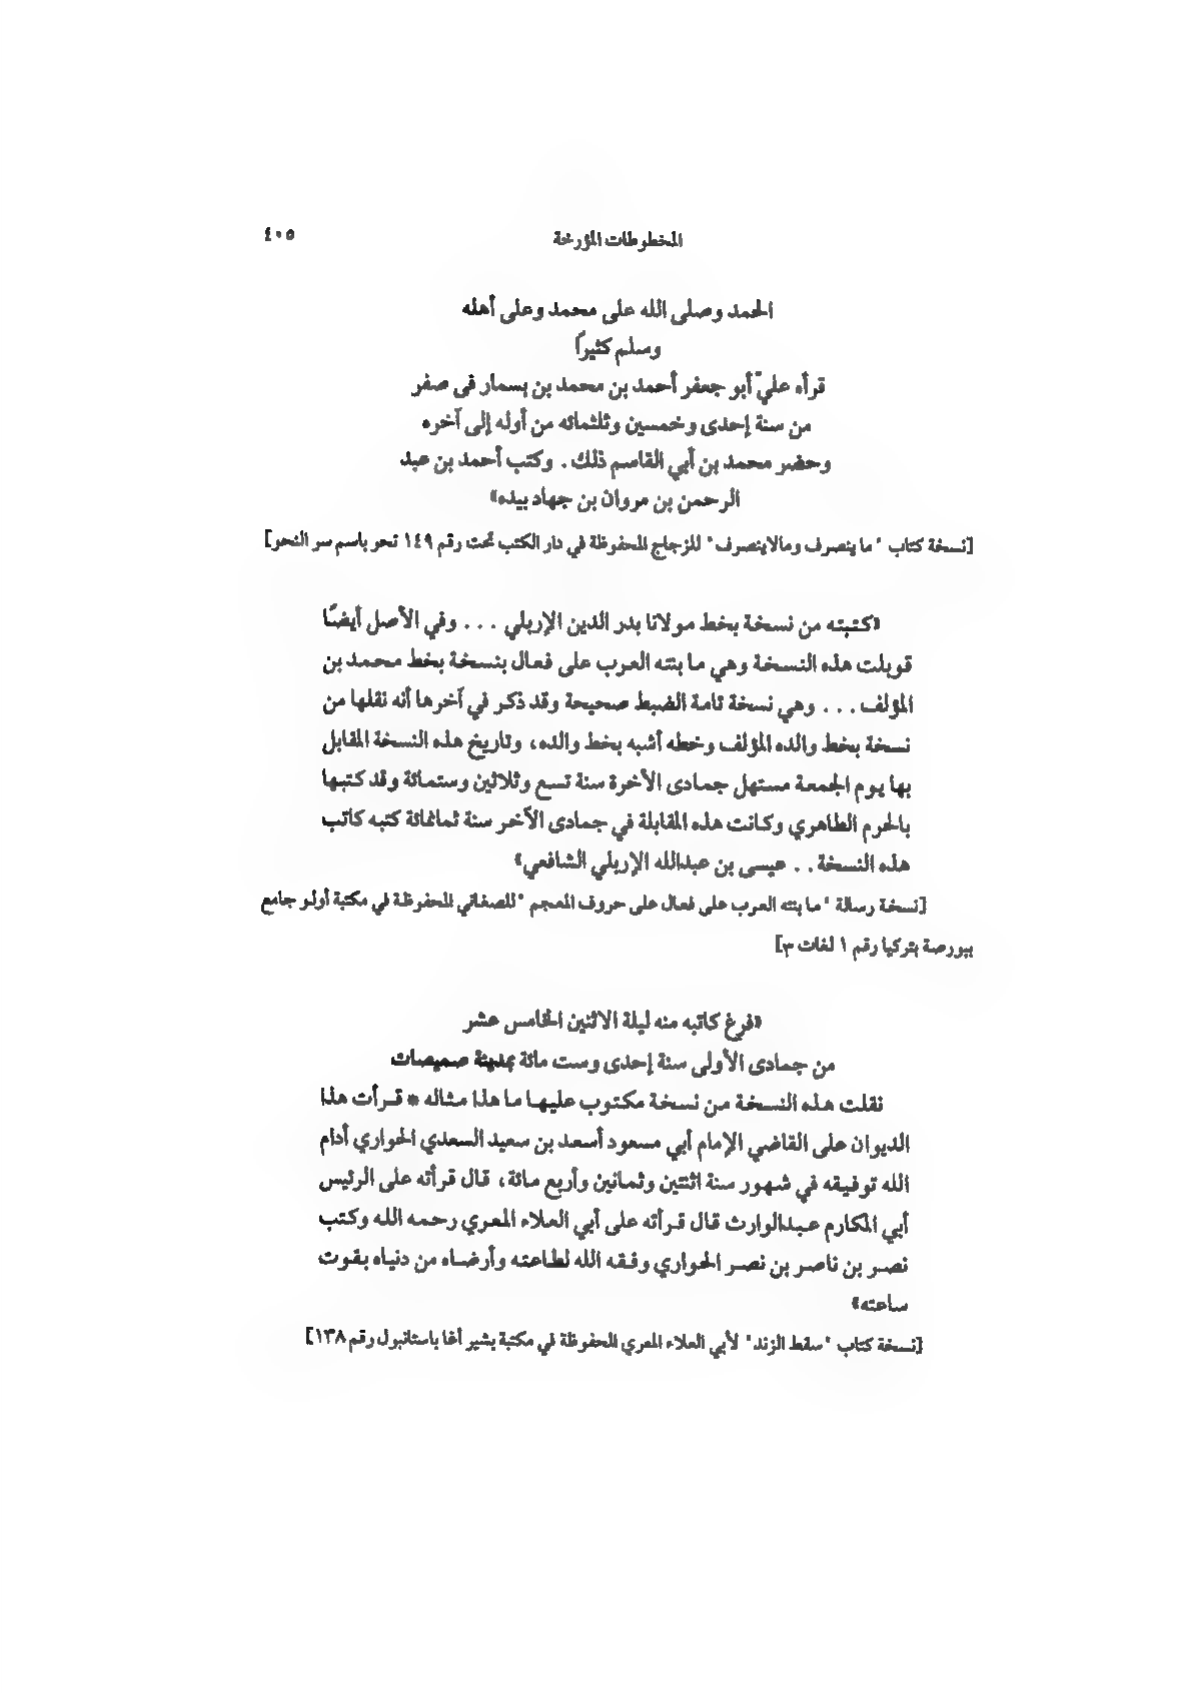 المخطوطات المؤرخة ٤٠٥
الحمد وصلى الله على محمد وعلى أهله
وسلم كثيراً
قرأه عليّ أبو جعفر أحمد بن محمد بن بسمار فى صفر
من سنة إحدى وخمسين وثلثمائه من أوله إلى آخره
وحضر محمد بن أبي القاسم ذلك. وكتب أحمد بن عبد
الرحمن بن مروان بن جهاد بيده»
[نسخة كتاب "ما ينصرف ومالاينصرف" للزجاج المحفوظة في دار الكتب تحت رقم ١٤٩ نحو باسم سر النحو]
«كتبته من نسخة بخط مولانا بدر الدين الإربلي ... وفي الأصل أيضًا
قوبلت هذه النسخة وهي ما بنته العرب على فعال بنسخة بخط محمد بن
المؤلف... وهي نسخة تامة الضبط صحيحة وقد ذكر في آخرها أنه نقلها من
نسخة بخط والده المؤلف وخطه أشبه بخط والده، وتاريخ هذه النسخة المقابل
بها يوم الجمعة مستهل جمادى الآخرة سنة تسع وثلاثين وستمائة وقد كتبها
بالحرم الطاهري وكانت هذه المقابلة في جمادى الآخر سنة ثمانمائة كتبه كاتب
هذه النسخة.. عيسى بن عبدالله الإربلي الشافعي»
[نسخة رسالة "ما بنته العرب على فعال على حروف المعجم" للصغاني المحفوظة في مكتبة أولو جامع
ببورصة بتركيا رقم ١ لغات ٣]
«فرغ كاتبه منه ليلة الاثنين الخامس عشر
من جمادى الأولى سنة إحدى وست مائة بمدينة صميصات
نقلت هذه النسخة من نسخة مكتوب عليها ما هذا مثاله * قرأت هذا
الديوان على القاضي الإمام أبي مسعود أسعد بن سعيد السعدي الحواري أدام
الله توفيقه في شهور سنة اثنتين وثمانين وأربع مائة، قال قرأته على الرئيس
أبي المكارم عبدالوارث قال قرأته على أبي العلاء المعري رحمه الله وكتب
نصر بن ناصر بن نصر الحواري وفقه الله لطاعته وأرضاه من دنياه بقوت
ساعته»
[نسخة كتاب "سقط الزند" لأبي العلاء المعري المحفوظة في مكتبة بشير أغا باستانبول رقم ١٣٨]